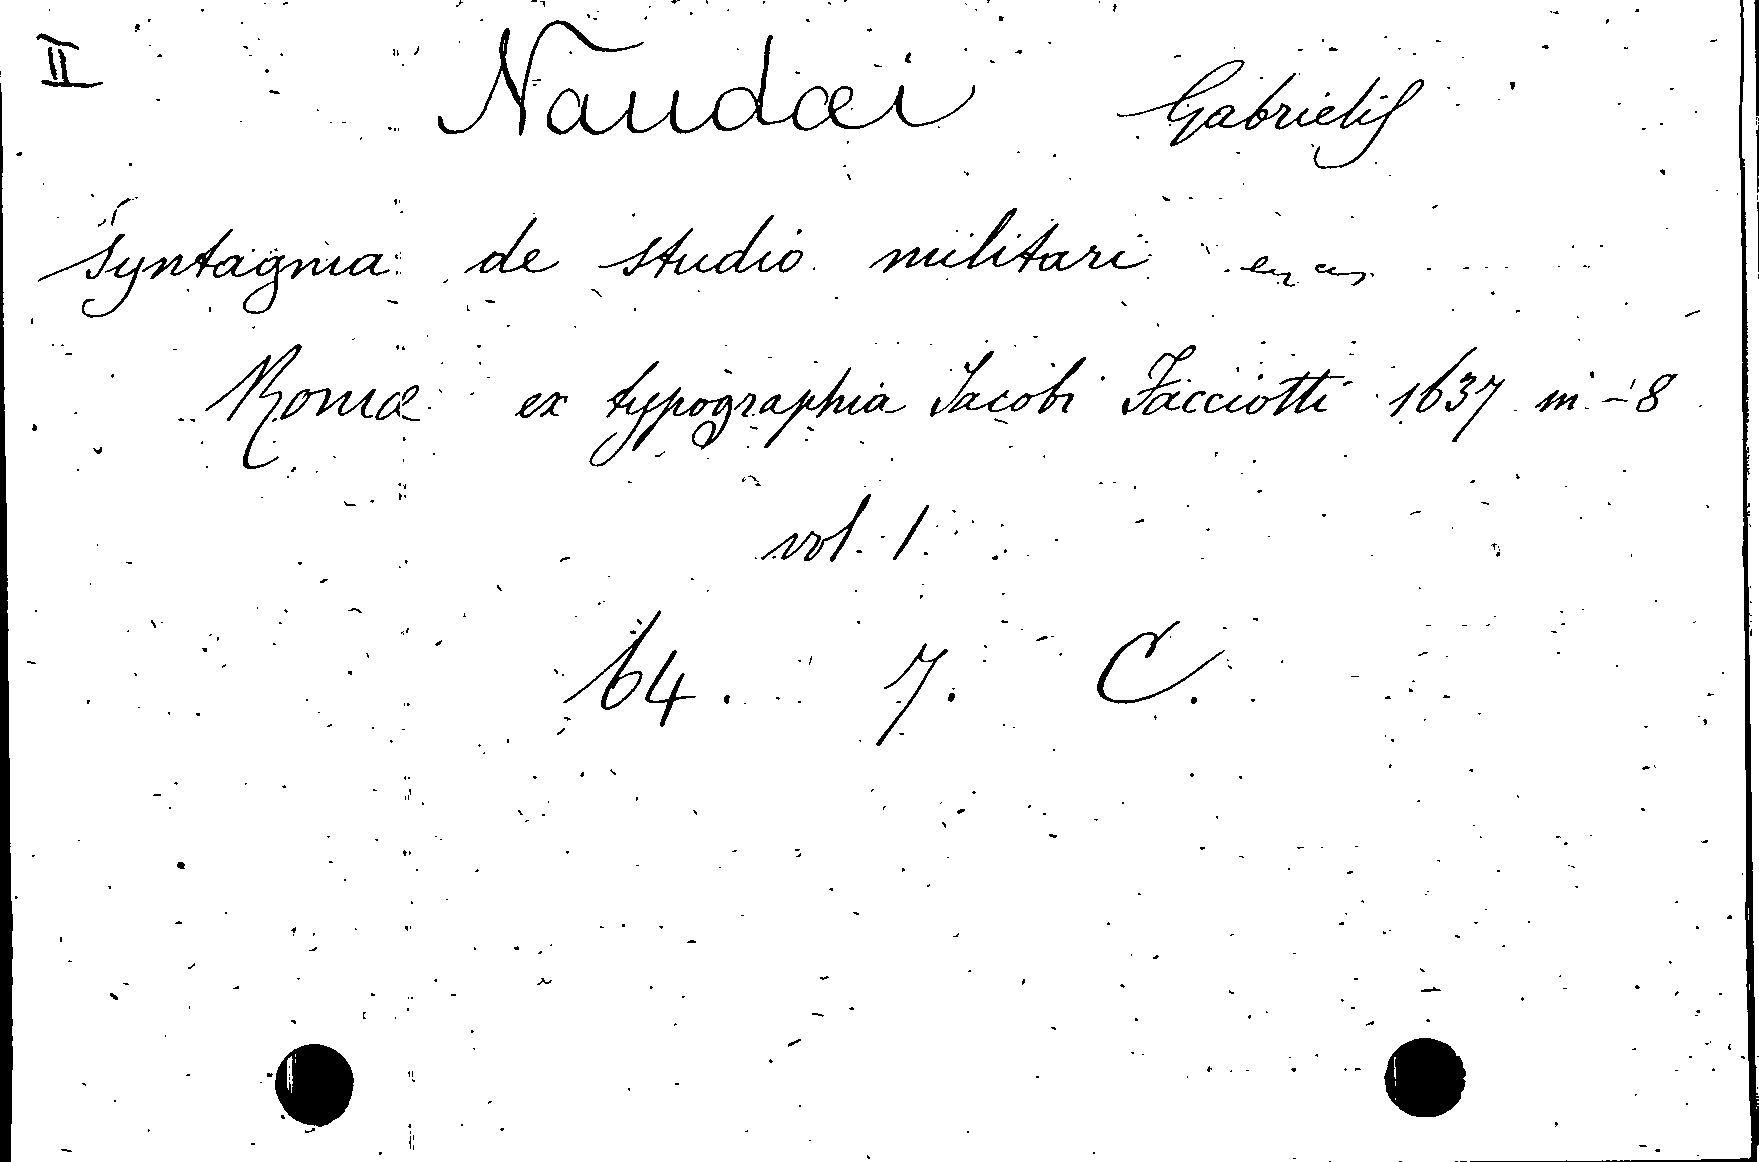 II Naudæi Gabrielis
Syntagma de studio militari
Romæ ex typographia Iacobi Facciotti 1637 in-8
vol. 1
64. 7. C.